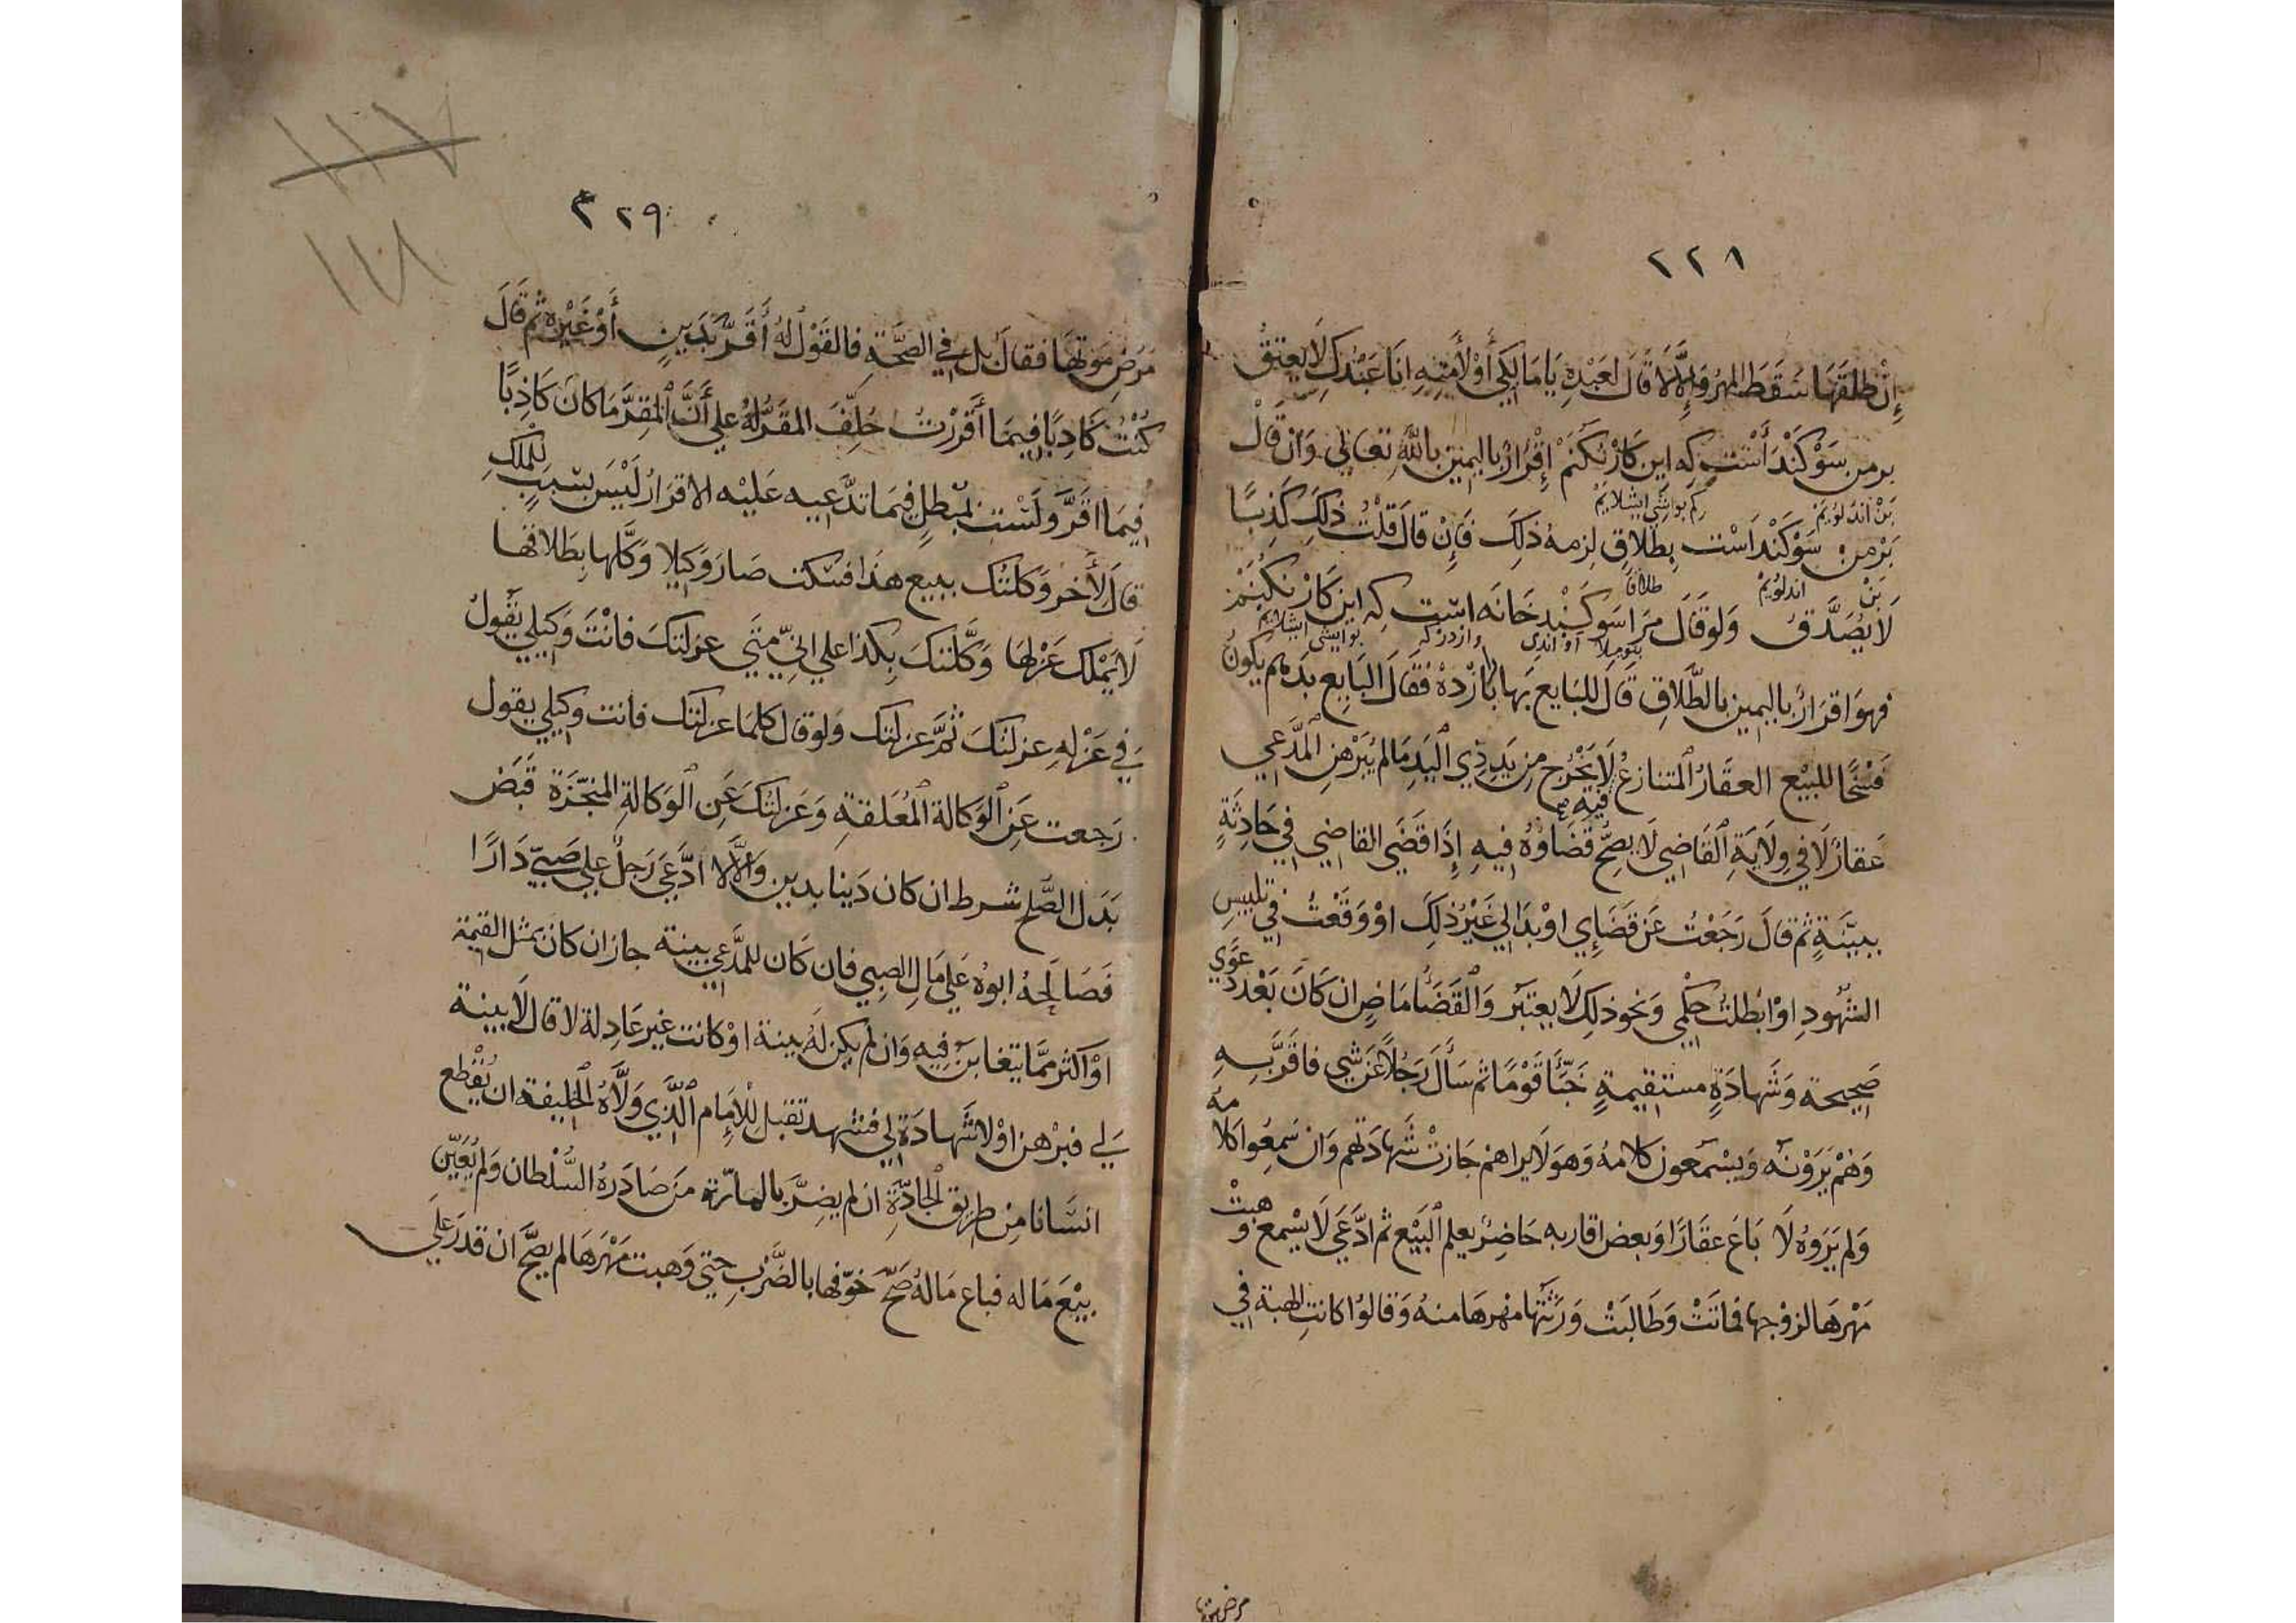 ٢٢٨
إِنْ طلقَهَا سَقَطَ المهرُ وَإِلَّا لَا قَالَ لعَبْدِهِ يَا مَالِكِي أَوْ لأَمَتِهِ انَا عَبْدُكِ لَا يعتِقُ
برمن سَوْكَنْد أَسْت كِه اين كَارْ نَكُنَمْ إِقْرَارٌ باليمينِ باللَّهِ تعَالي وَان قَالَ
بَنْ اندلويم كم بو ايشي ايشلايم
بَرْمن سَوْكَنْد اَسْت بِطَلَاقٍ لزمهُ ذلِكَ فَإِنْ قالَ قلْتُ ذلِكَ كَذِبًا
بَنْ اندلويم طلاقا
لَا يُصَدَّقُ وَلَوْ قَالَ مَرَا سَوْكَنْدِ خَانَه است كِه اين كَارْ نكُنَمْ
بو ايشي ايشلايم
فهوَ اقرَارٌ باليمينِ بالطَّلَاقِ قَالَ للبَايعِ بَها بَازْدِهْ فَقَالَ البَايِع بدَهَم يَكونُ
فَسْخًا للبَيْعِ العقَارُ المتنازعُ فيه لَا يَخْرُج مِن يَدِ ذِي اليَدِ مَا لم يُبَرْهِنِ المدَّعِي
عَقارٌ لَا في وِلَايَةِ القَاضِي لَا يصِحُّ قَضَاؤُهُ فيهِ إِذَا قَضَى القَاضِي في حَادِثَةٍ
ببيِّنَةٍ ثم قالَ رَجَعْتُ عَن قَضَائِي اوْ بدَا لي غَيْرُ ذلِكَ اوْ وَقَعْتُ في تلبيسِ
الشّهُودِ اوْ ابْطلْتُ حكْمِي وَنحو ذلِكَ لَا يعتبَر وَالقَضَاءُ مَاضٍ ان كَانَ بَعْدَ دعْوَي
صَحِيحَةٍ وَشَهادَةٍ مستقيمةٍ خَبَّأَ قَوْمًا ثم سَأَلَ رَجُلًا عَن شيٍ فاقَرَّ بِهِ
وَهُمْ يَرَوْنَه وَيَسْمَعون كلَامهُ وَهوَ لَا يراهم جَازتْ شَهادَتهم وَان سَمِعُوا كلامه
وَلم يَرَوهُ لَا بَاعَ عقَارًا وَبعض اقاربه حَاضِرٌ يعلم البَيْعَ ثم ادَّعَي لَا يسْمع وهبتْ
مَهْرهَا لزوْجها فماتَتْ وَطَالَبَتْ وَرَثَتُها مَهرهَا منهُ وَقالوُا كانتِ الهبَة في
مرض موتها
٢٢٩
١١٧
١١٨
مَرَضِ مَوْتِهَا فقالَ بل في الصِّحَّةِ فالقَوْلُ لهُ أَقَرَّ بدَيْنٍ أَوْ غَيْرِه ثم قَالَ
كُنْتُ كَاذِبًا فيمَا أَقْرَرْتُ حُلِّفَ المقَرُّ لهُ علي أَنَّ المقِرَّ مَا كان كَاذِبًا
فيمَا اقَرَّ وَلَسْت بمبْطِلٍ فيمَا تدَّعيه عَليْه الاقرَارُ لَيْسَ بسَبَبٍ للملك
قالَ لأَخَر وَكلتك ببيع هذَا فسَكت صَارَ وَكيلا وَكَّلها بِطَلَاقها
لَا يَمْلِك عَزْلها وَكَّلتكَ بِكذَا علي انِّي مَتَي عزَلتكَ فانْتَ وَكيلي يقُولُ
في عَزْلِهِ عزلتُكَ ثمَّ عزلتك وَلو قال كلمَا عزلتك فانت وَكيلي يقول
رَجعت عَنِ الوَكالة المُعَلقةِ وَعَزلتُكَ عَنِ الوَكالةِ المنَجّزَةِ قَبْضُ
بَدَلِ الصُّلحِ شرط ان كان دَينا بدينٍ وَالَّا لا ادَّعَى رَجلٌ علي صَبيٍّ دَارًا
فَصَالَحهُ ابوُهُ عَلَي مَالِ الصبِي فان كَان للمدَّعِي بينةٌ جاز ان كانَ بمثل القيمَة
اوْ اكثر ممَّا يتغابَن فِيهِ وَان لم يكن لَهُ بينة اوْ كانت غير عَادِلة لا قال لَا بينة
لي فبَرْهَن اوْ لَا شَهادَة لي فشهد تقبل للإِمَام الَّذِي وَلَّاهُ الخليفة ان يُقْطع
انسَانا مِن طريق الجادَّةِ ان لم يضِرَّ بالمارّة مَن صَادَرهُ السُّلطان وَلم يُعَيِّن
بَيْعَ مَاله فباع مَالهُ صَحَّ خوّفها بالضَّرْبِ حَتي وَهبت مَهْرَهَا لم يصحَّ ان قدَرَ علَي